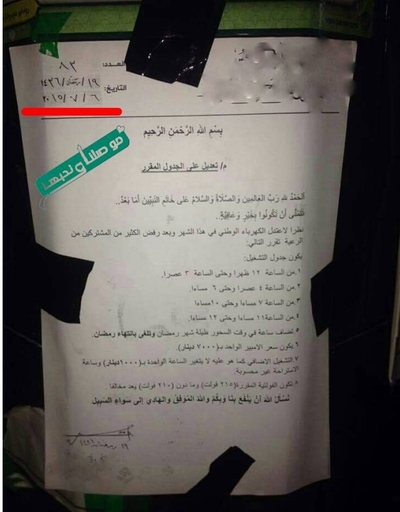 العدد: ٨٢
التاريخ: ١٩/رمضان/١٤٣٦
٢٠١٥/٠٧/٠٦
بِسْمِ اللهِ الرَّحْمَنِ الرَّحِيمِ
م/ تعديل على الجدول المقرر
موصلنا ونحبها
الحَمْدُ للهِ رَبِّ العَالَمِينَ وَالصَّلَاةُ وَالسَّلَامُ عَلَى خَاتَمِ النَّبِيِّينَ أَمَّا بَعْدُ..
نَتَمَنَّى أَنْ تَكُونُوا بِخَيْرٍ وَعَافِيَةٍ..
نظرا لاعتدال الكهرباء الوطني في هذا الشهر وبعد رفض الكثير من المشتركين من
الرعية تقرر التالي:
يكون جدول التشغيل:
١.من الساعة ١٢ ظهرا وحتى الساعة ٣ عصرا.
٢.من الساعة ٤ عصرا وحتى ٦ مساءا.
٣.من الساعة ٧ مساءا وحتى ١٠مساءا
٤.من الساعة١١ مساءا وحتى ١٢ مساءا.
٥.تضاف ساعة في وقت السحور طيلة شهر رمضان وتلغى بانتهاء رمضان.
٦.يكون سعر الامبير الواحد بـ(٧٠٠٠دينار).
٧.التشغيل الاضافي كما هو عليه لا يتغير الساعة الواحدة بـ(١٠٠٠دينار) وساعة
الاستراحة غير محسوبة.
٨.تكون الفولتية المقررة(٢١٥ فولت) وما دون (٢١٠ فولت) يعد مخالفا
نَسْأَلُ اللهَ أَنْ يَنْفَعَ بِنَا وَبِكُم وَاللهُ المُوَفِّقُ وَالهَادِي إِلَى سَوَاءِ السَّبِيلِ